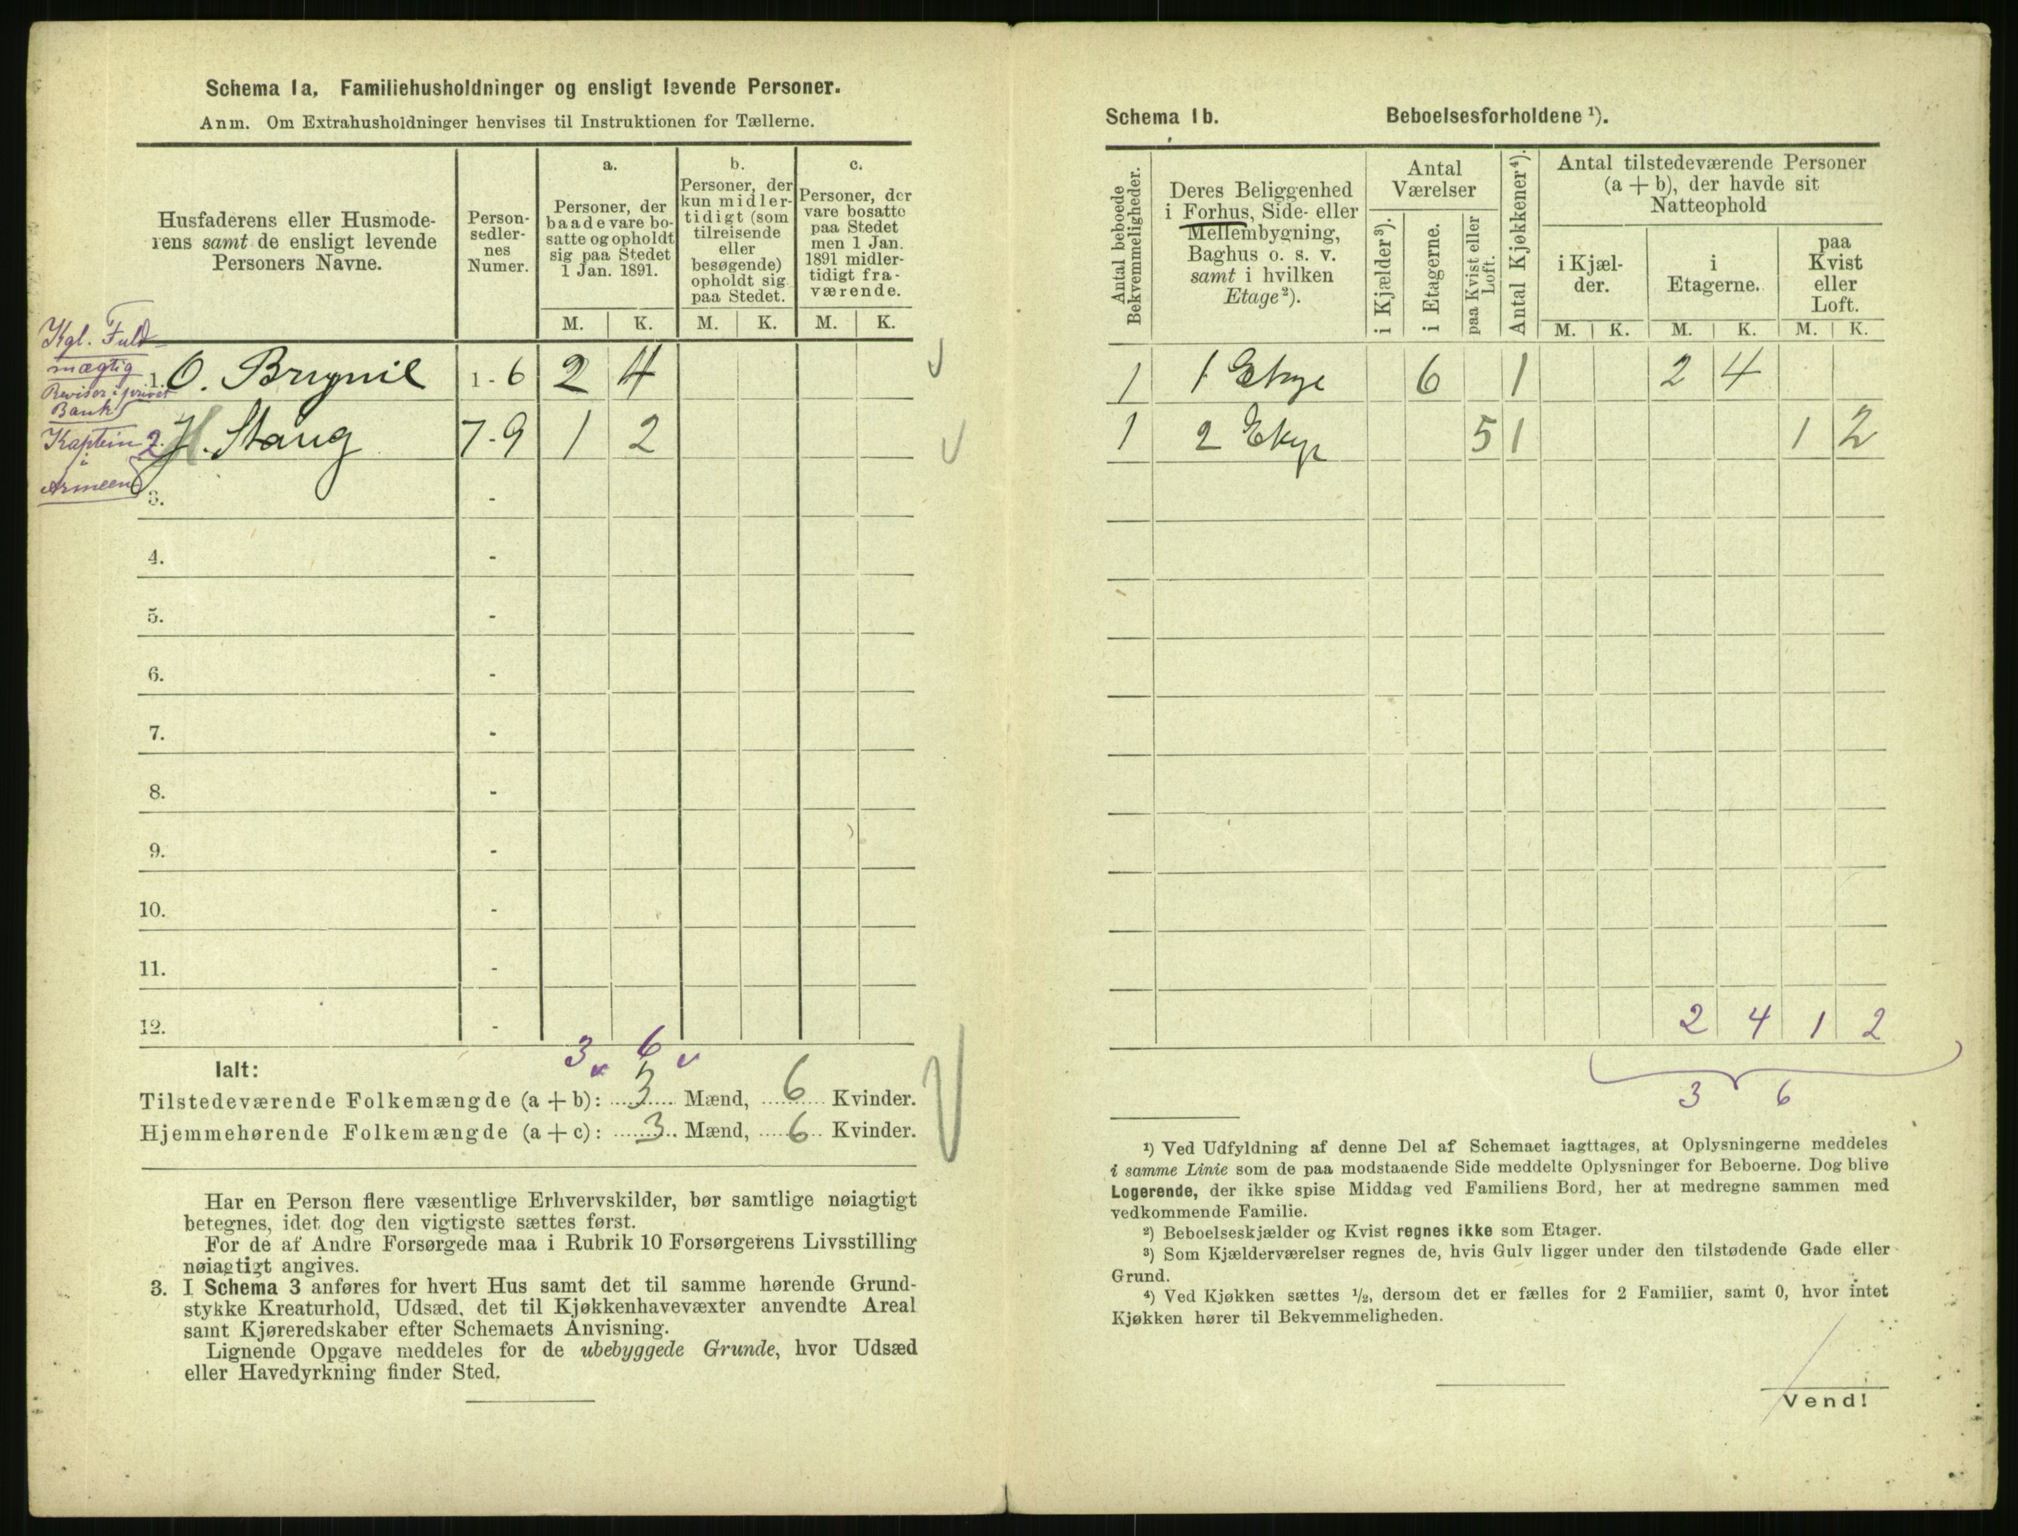 Schema 1a. Familiehusholdninger og ensligt levende Personer.
Anm. Om Extrahusholdninger henvises til Instruktionen for Tællerne.
Husfaderens eller Husmode-
rens samt de ensligt levende
Personers Navne.
Person-
sedler-
nes
Numer.
a.
Personer, der
baade vare bo-
satte og opholdt
sig paa Stedet
1 Jan. 1891.
b.
Personer, der
kun midler-
tidigt (som
tilreisende
eller
besøgende)
opholdt sig
paa Stedet.
c.
Personer, der
vare bosatte
paa Stedet
men 1 Jan.
1891 midler-
tidigt fra-
værende.
M. K. M. K. M. K.
Kgl. Fuld-
mægtig
Revisor i privat
Bank
1. O. 1-6 2 4
Kaptein
i
Armeen
2. H. Stang 7-9 1 2
3. -
4. -
5. -
6. -
7. -
8. -
9. -
10. -
11. -
12. -
3 6
Ialt:
Tilstedeværende Folkemængde (a + b): 3 Mænd, 6 Kvinder.
Hjemmehørende Folkemængde (a + c): 3 Mænd, 6 Kvinder.
Har en Person flere væsentlige Erhvervskilder, bør samtlige nøiagtigt
betegnes, idet dog den vigtigste sættes først.
For de af Andre Forsørgede maa i Rubrik 10 Forsørgerens Livsstilling
nøiagtigt angives.
3. I Schema 3 anføres for hvert Hus samt det til samme hørende Grund-
stykke Kreaturhold, Udsæd, det til Kjøkkenhavevæxter anvendte Areal
samt Kjøreredskaber efter Schemaets Anvisning.
Lignende Opgave meddeles for de ubebyggede Grunde, hvor Udsæd
eller Havedyrkning finder Sted.
Schema 1b. Beboelsesforholdene ¹).
Antal beboede
Bekvemmeligheder.
Deres Beliggenhed
i Forhus, Side- eller
Mellembygning,
Baghus o. s. v.
samt i hvilken
Etage²).
Antal
Værelser
i Kjælder³).
i Etagerne.
paa Kvist eller
Loft.
Antal Kjøkkener⁴).
Antal tilstedeværende Personer
(a + b), der havde sit
Natteophold
i Kjæl-
der.
i
Etagerne.
paa
Kvist
eller
Loft.
M. K. M. K. M. K.
1 1 Etage 6 1 2 4
1 2 Etage 5 1 1 2
2 4 1 2
3 6
¹) Ved Udfyldning af denne Del af Schemaet iagttages, at Oplysningerne meddeles
i samme Linie som de paa modstaaende Side meddelte Oplysninger for Beboerne. Dog blive
Logerende, der ikke spise Middag ved Familiens Bord, her at medregne sammen med
vedkommende Familie.
²) Beboelseskjælder og Kvist regnes ikke som Etager.
³) Som Kjælderværelser regnes de, hvis Gulv ligger under den tilstødende Gade eller
Grund.
⁴) Ved Kjøkken sættes ½, dersom det er fælles for 2 Familier, samt 0, hvor intet
Kjøkken hører til Bekvemmeligheden.
Vend!